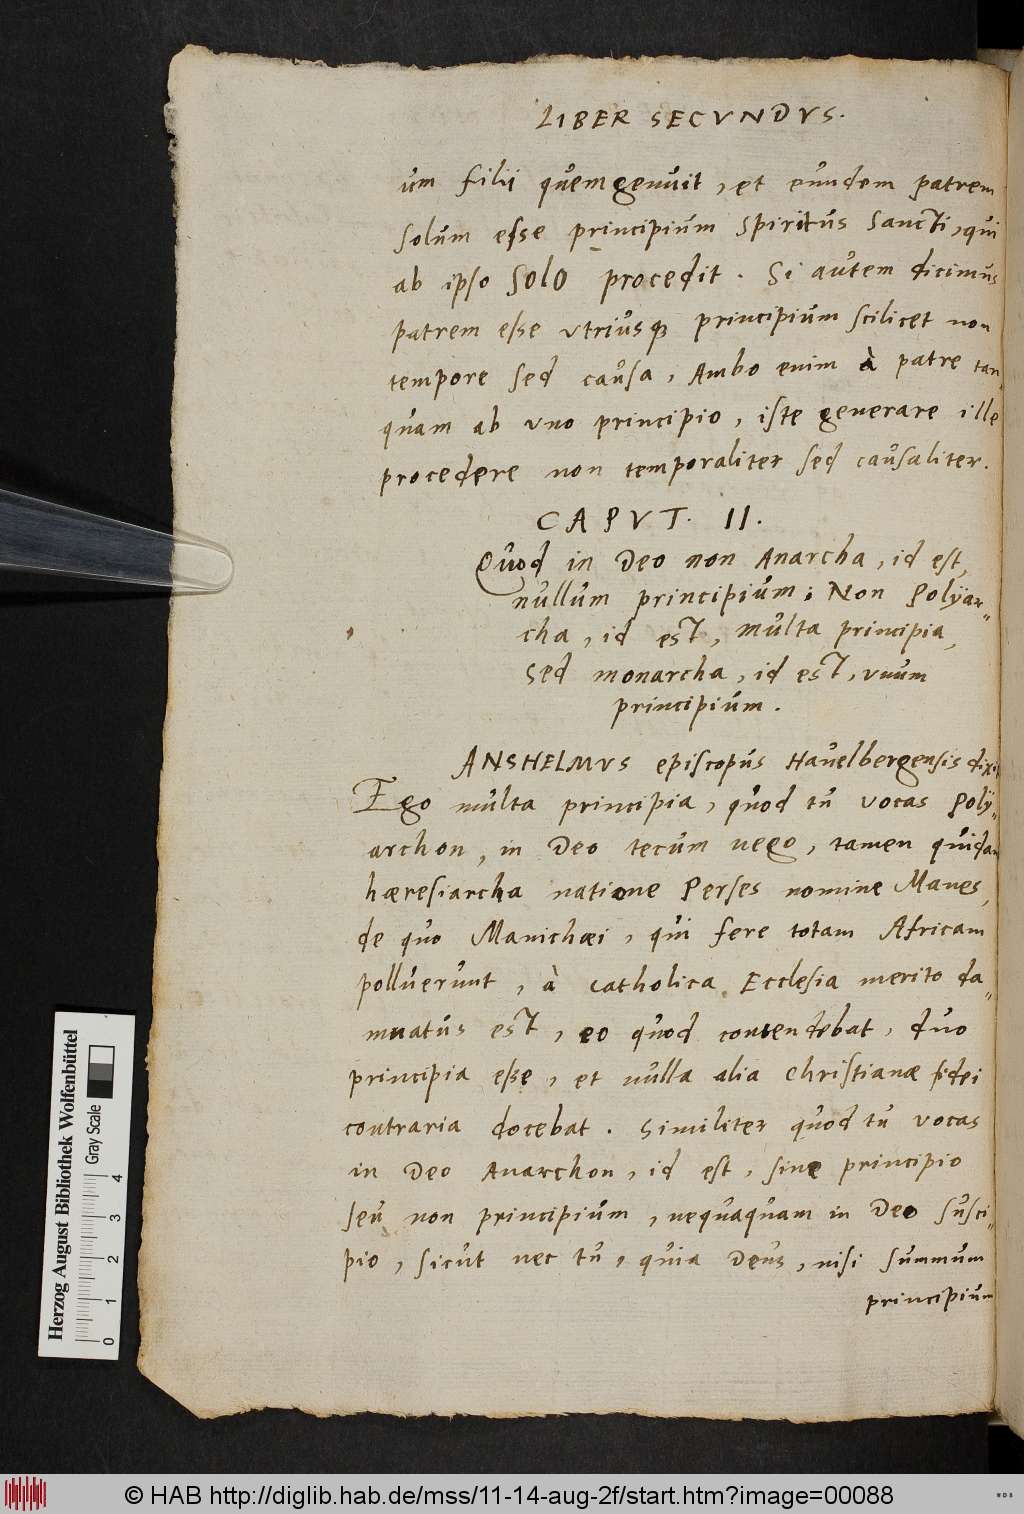 LIBER SECVNDVS.
um filii quem genuit, et eundem patrem
solum esse principium Spiritus Sancti, qui
ab ipso solo procedit. Si autem dicimus
patrem esse vtriusque principium scilicet non
tempore sed causa, Ambo enim à patre tan
quam ab vno principio, iste generare ille
procedere non temporaliter sed causaliter.
CAPVT. II.
Quod in Deo non Anarcha, id est,
nullum principium; Non Polÿar„
cha, id est, multa principia,
sed monarcha, id est, vnum
principium.
ANSHELMVS episcopus Hauelbergensis dixit
Ego multa principia, quod tu vocas Polÿ„
archon, in Deo tecum nego, tamen quidam
hæresiarcha natione Perses nomine Manes,
de quo Manichæi, qui fere totam Africam
polluerunt, à catholica Ecclesia merito da„
mnatus est, eo quod contendebat, duo
principia esse, et nulla alia christianæ fidei
contraria docebat. Similiter quod tu vocas
in Deo Anarchon, id est, sine principio
seu non principium, nequaquam in Deo susci„
pio, sicut nec tu, quia Deus, nisi summum
principium
Herzog August Bibliothek Wolfenbüttel
Gray Scale
0 1 2 3 4
© HAB http://diglib.hab.de/mss/11-14-aug-2f/start.htm?image=00088